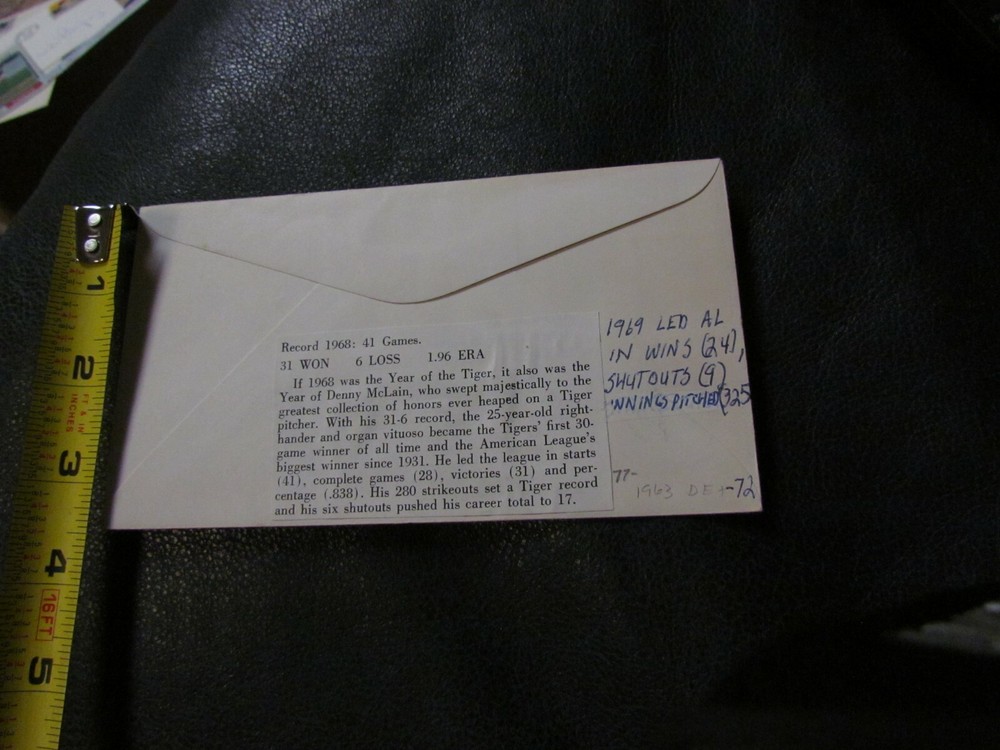 Record 1968: 41 Games.
31 WON 6 LOSS 1.96 ERA
If 1968 was the Year of the Tiger, it also was the
Year of Denny McLain, who swept majestically to the
greatest collection of honors ever heaped on a Tiger
pitcher. With his 31-6 record, the 25-year-old right-
hander and organ vituoso became the Tigers' first 30-
game winner of all time and the American League's
biggest winner since 1931. He led the league in starts
(41), complete games (28), victories (31) and per-
centage (.838). His 280 strikeouts set a Tiger record
and his six shutouts pushed his career total to 17.
1969 LED AL
IN WINS (24),
SHUTOUTS (9)
INNINGS PITCHED (325
77-
1963 DET -72
1
2
FT & IN
INCHES
3
4
16FT
5